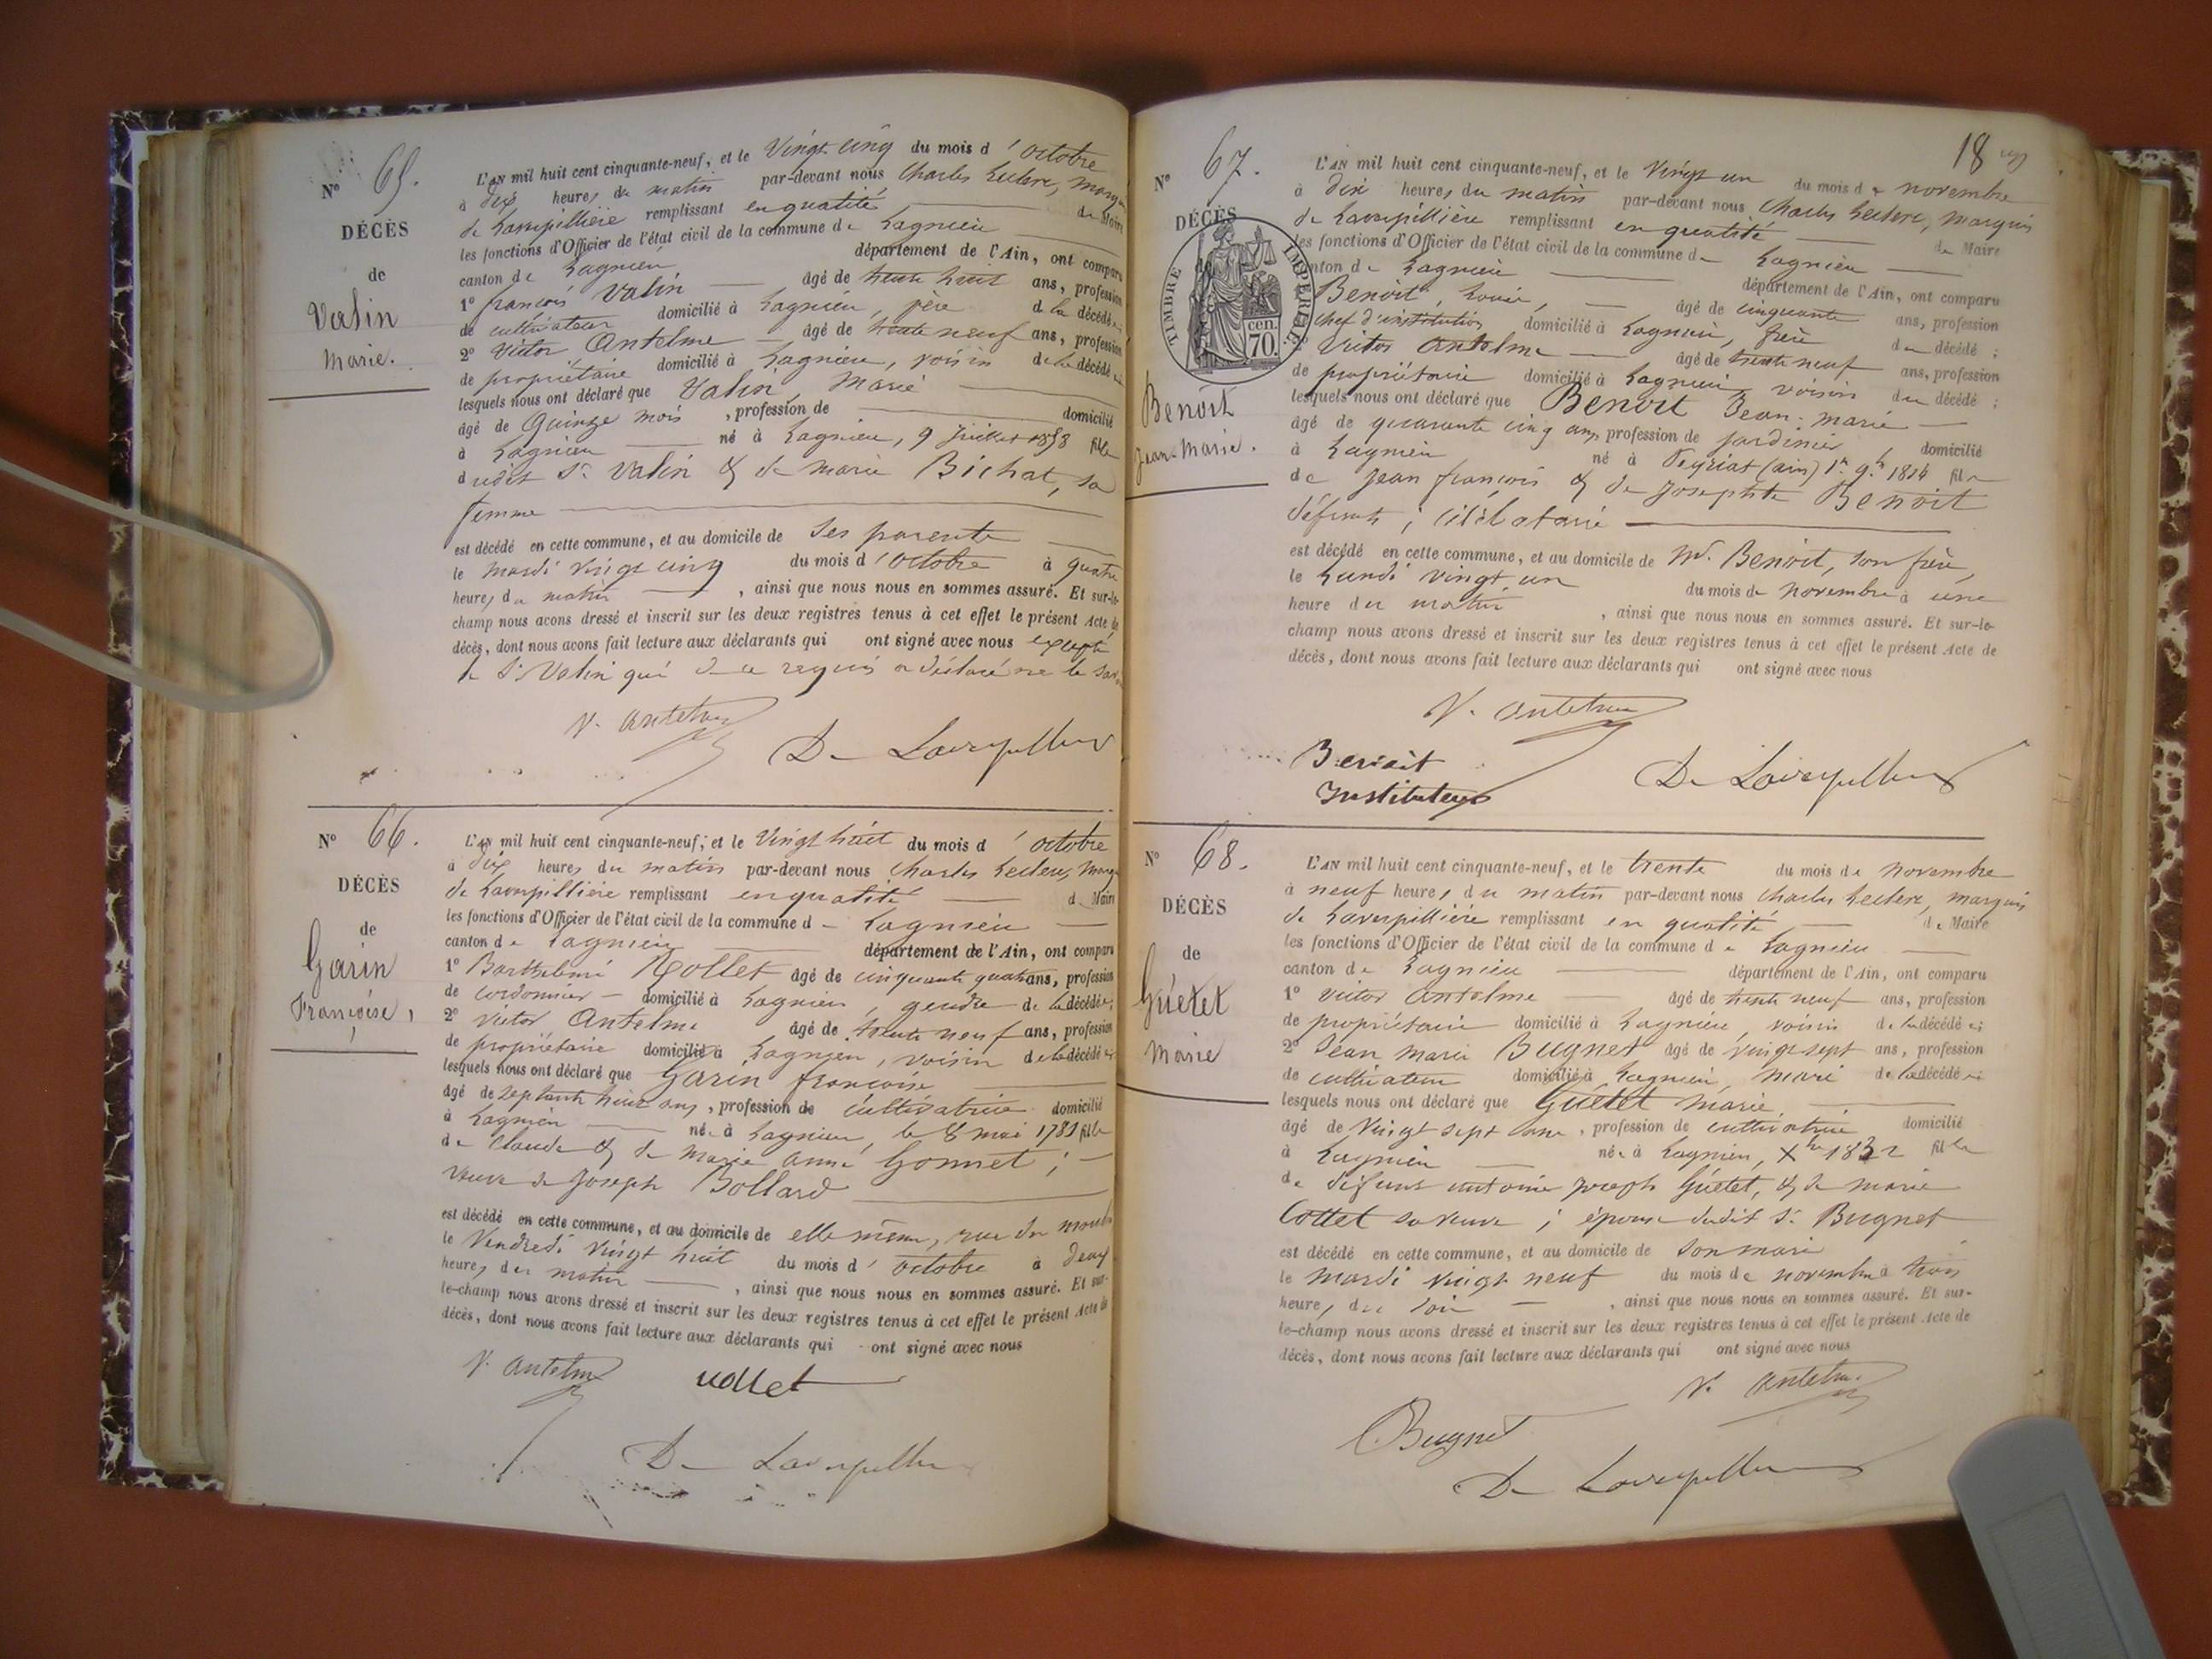 N° 65.
DÉCÈS
de
Valin
Marie.
L'AN mil huit cent cinquante-neuf, et le Vingt cinq du mois d'octobre
à dix heures du matin par-devant nous Charles Leclerc, marquis
de Laverpillière remplissant en qualité de Maire
les fonctions d'Officier de l'état civil de la commune de Lagnieu
canton de Lagnieu département de l'Ain, ont comparu
1° françois Valin âgé de trente huit ans, profession
de cultivateur domicilié à Lagnieu, père de la décédée;
2° Victor Antelme âgé de trente neuf ans, profession
de propriétaire domicilié à Lagnieu, voisin de la décédée
lesquels nous ont déclaré que Valin Marie
âgé de Quinze mois, profession de domicilié
à Lagnieu né à Lagnieu, 9 Juillet 1858 fille
dudit Sr. Valin & de marie Bichat, sa
femme
est décédé en cette commune, et au domicile de ses parents
le mardi vingt cinq du mois d'octobre à quatre
heures du matin, ainsi que nous nous en sommes assuré. Et sur-le-
champ nous avons dressé et inscrit sur les deux registres tenus à cet effet le présent Acte de
décès, dont nous avons fait lecture aux déclarants qui ont signé avec nous excepté
le Sr. Valin qui de ce requis a déclaré ne le savoir
V. Antelme
De Laverpillière
N° 66.
DÉCÈS
de
Garin
Françoise,
L'AN mil huit cent cinquante-neuf, et le Vingt huit du mois d'octobre
à dix heures du matin par-devant nous Charles Leclerc, marquis
de Laverpillière remplissant en qualité de Maire
les fonctions d'Officier de l'état civil de la commune de Lagnieu
canton de Lagnieu département de l'Ain, ont comparu
1° Barthelemi Rollet âgé de cinquante quatre ans, profession
de cordonnier domicilié à Lagnieu, gendre de la décédée;
2° Victor Antelme âgé de trente neuf ans, profession
de propriétaire domicilié à Lagnieu, voisin de la décédée
lesquels nous ont déclaré que Garin françoise
âgé de septante huit ans, profession de cultivatrice domicilié
à Lagnieu née à Lagnieu, le 8 mai 1781 fille
de Claude & de Marie Anne Gonnet;
veuve de Joseph Bollard
est décédé en cette commune, et au domicile de elle même, rue du
le Vendredi Vingt huit du mois d'octobre à deux
heures du matin, ainsi que nous nous en sommes assuré. Et sur-
le-champ nous avons dressé et inscrit sur les deux registres tenus à cet effet le présent Acte de
décès, dont nous avons fait lecture aux déclarants qui ont signé avec nous
V. Antelme
Rollet
De Laverpillière
18
N° 67.
DÉCÈS
de
TIMBRE IMPERIAL
70 cen.
Benoit
Jean-Marie.
L'AN mil huit cent cinquante-neuf, et le Vingt un du mois de novembre
à dix heures du matin par-devant nous Charles Leclerc, marquis
de Laverpillière remplissant en qualité de Maire
les fonctions d'Officier de l'état civil de la commune de Lagnieu
canton de Lagnieu département de l'Ain, ont comparu
Benoit, Louis, âgé de cinquante ans, profession
chef d'institution domicilié à Lagnieu, frère du décédé;
Victor Antelme âgé de trente neuf ans, profession
de propriétaire domicilié à Lagnieu, voisin du décédé;
lesquels nous ont déclaré que Benoit Jean-marie
âgé de quarante cinq ans, profession de jardinier, domicilié
à Lagnieu né à Peyriat (ain) 1er 9b 1814 fils
de Jean françois & de Josephte Benoit
défunts; célibataire
est décédé en cette commune, et au domicile de Mr. Benoit, son frère,
le Lundi vingt un du mois de novembre à une
heure du matin, ainsi que nous nous en sommes assuré. Et sur-le-
champ nous avons dressé et inscrit sur les deux registres tenus à cet effet le présent Acte de
décès, dont nous avons fait lecture aux déclarants qui ont signé avec nous
V. Antelme
Benoit
Instituteur
De Laverpillière
N° 68.
DÉCÈS
de
Guétet
Marie
L'AN mil huit cent cinquante-neuf, et le trente du mois de novembre
à neuf heures du matin par-devant nous Charles Leclerc, marquis
de Laverpillière remplissant en qualité de Maire
les fonctions d'Officier de l'état civil de la commune de Lagnieu
canton de Lagnieu département de l'Ain, ont comparu
1° Victor Antelme âgé de trente neuf ans, profession
de propriétaire domicilié à Lagnieu, voisin de la décédée;
2° Jean Marie Bugnet âgé de vingt sept ans, profession
de cultivateur domicilié à Lagnieu, mari de la décédée
lesquels nous ont déclaré que Guétet Marie
âgé de Vingt sept ans, profession de cultivatrice domicilié
à Lagnieu née à Lagnieu, Xbre 1832 fille
de défunt antoine joseph Guétet, & de marie
Collet sa veuve; épouse dudit Sr. Bugnet
est décédé en cette commune, et au domicile de son mari
le mardi vingt neuf du mois de novembre à trois
heures du soir, ainsi que nous nous en sommes assuré. Et sur-
le-champ nous avons dressé et inscrit sur les deux registres tenus à cet effet le présent Acte de
décès, dont nous avons fait lecture aux déclarants qui ont signé avec nous
V. Antelme
Bugnet
De Laverpillière